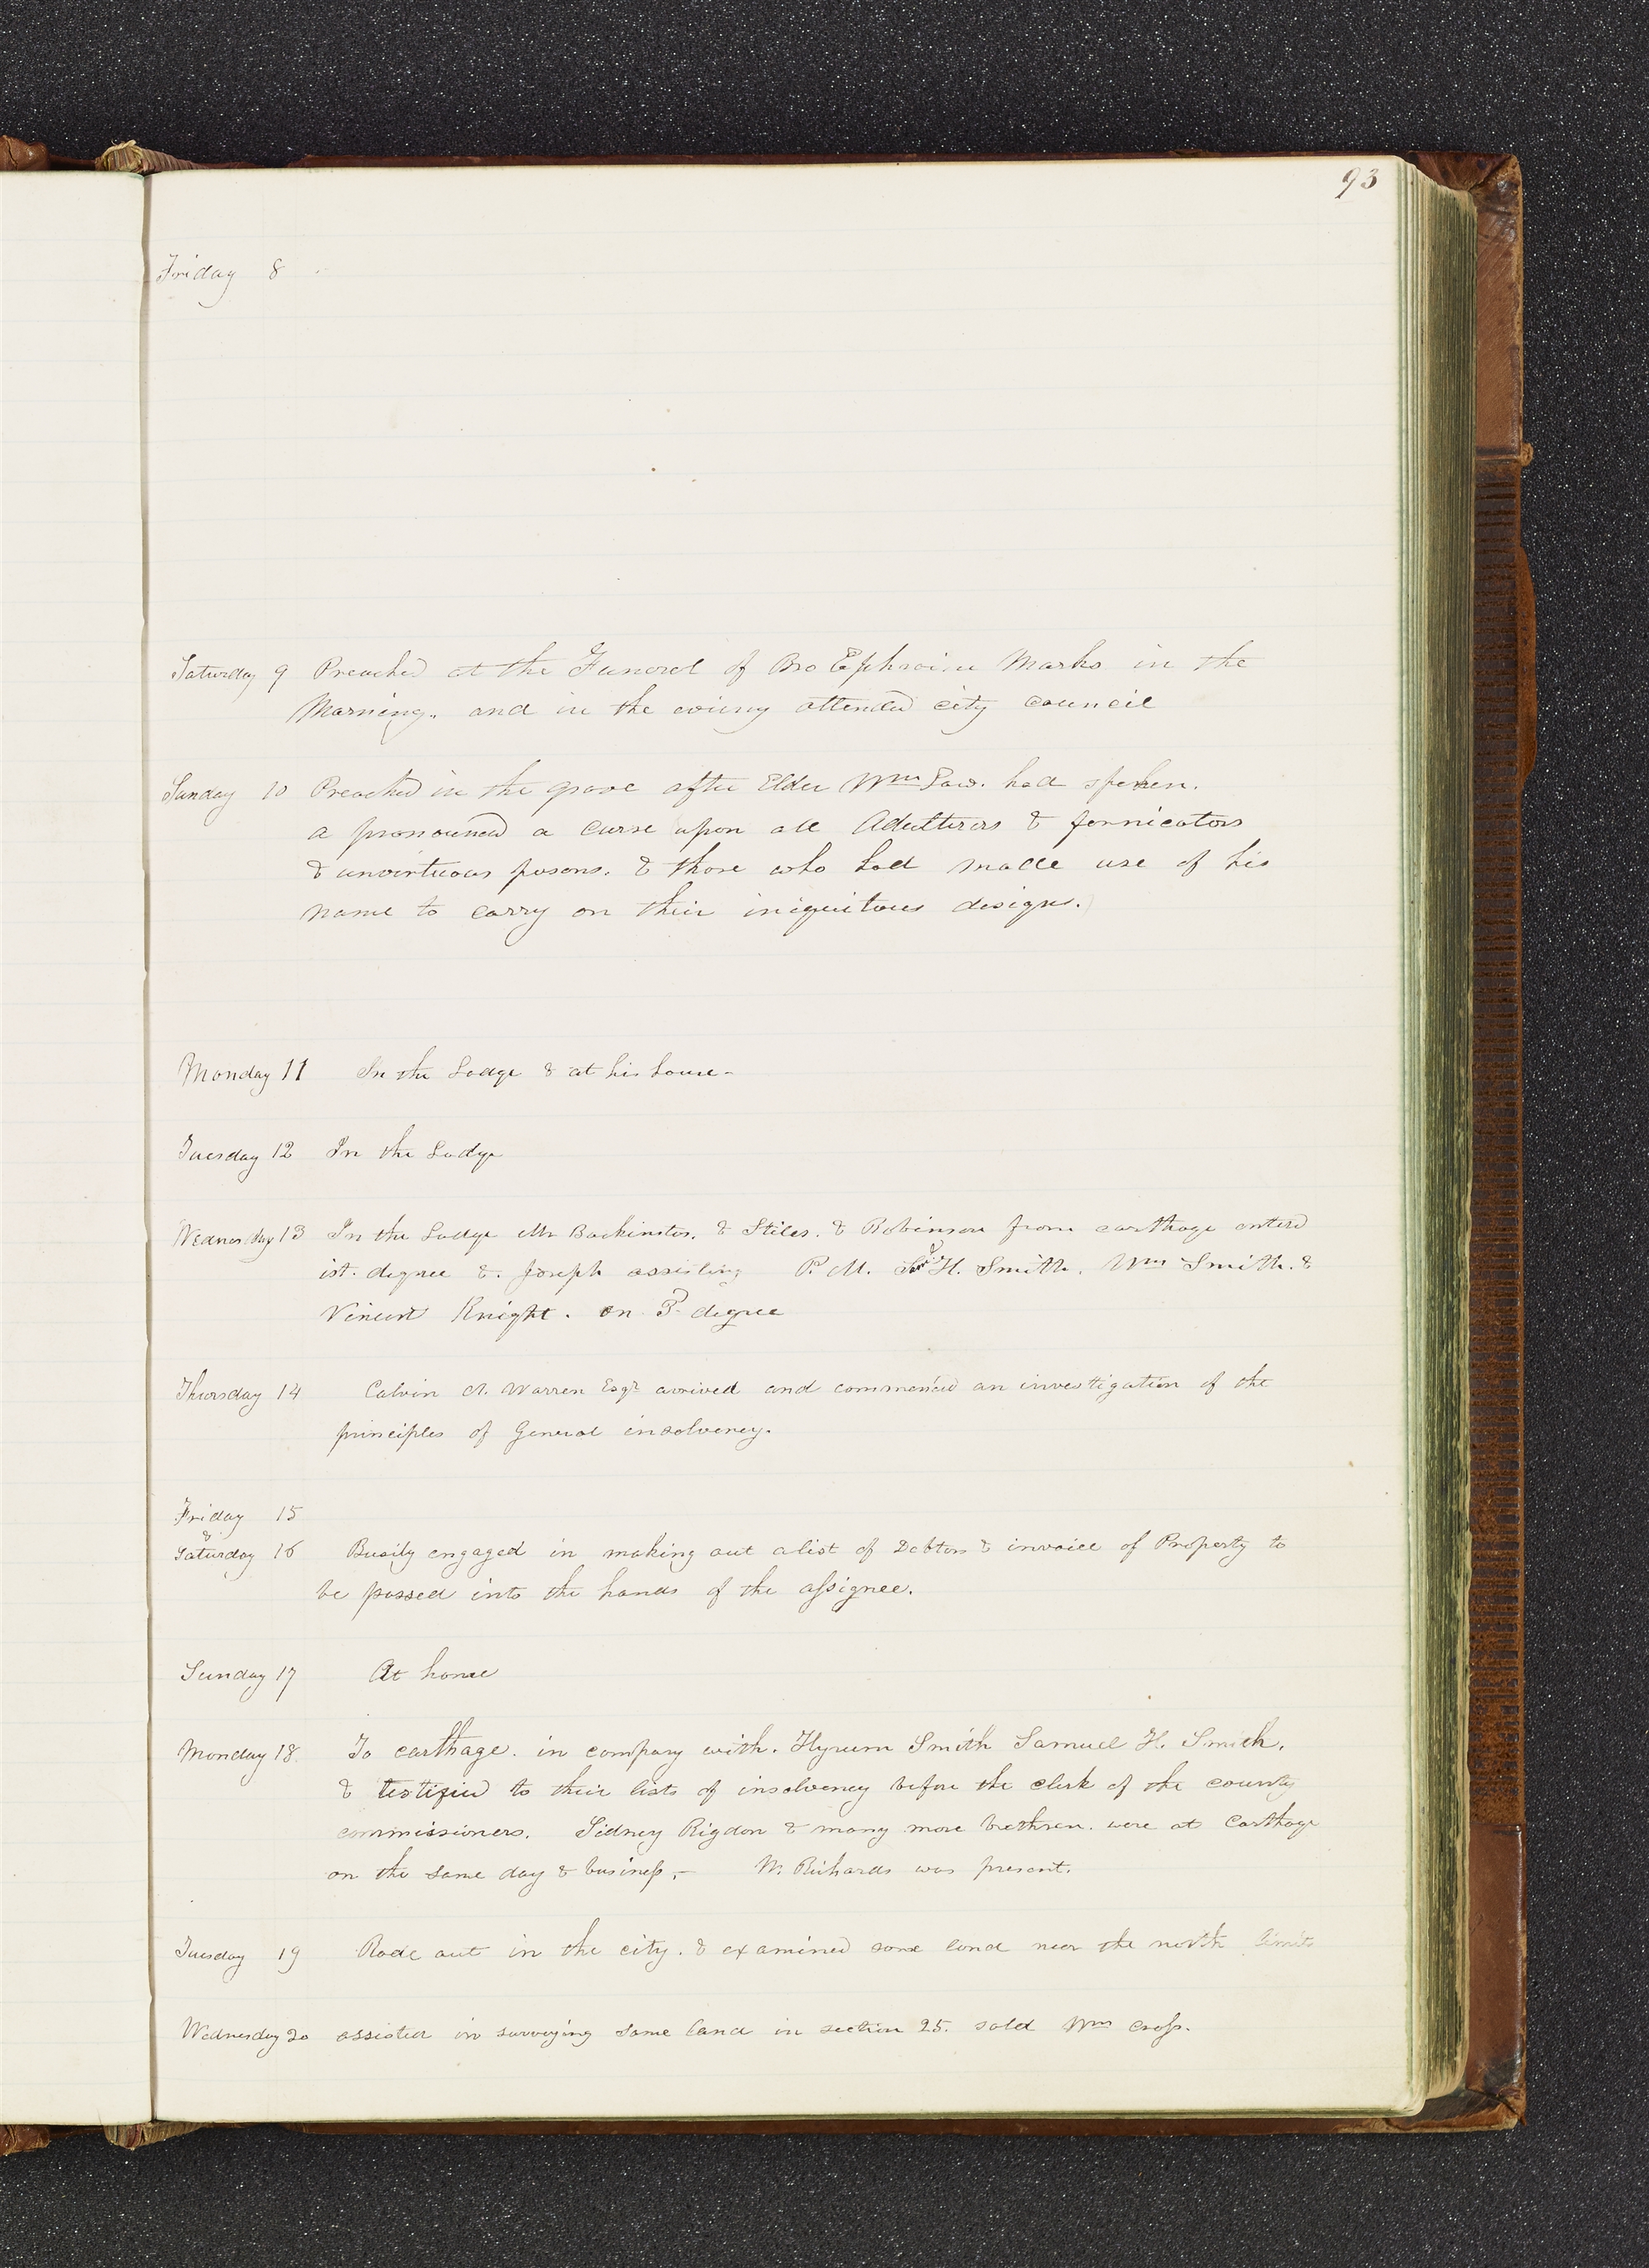 93
Friday 8
Saturday 9 Preached at the Funeral of Bro Ephraim Marks in the
Morning. and in the evining attended city council
Sunday 10 Preached in the grove after Elder Wm Law. had spoken.
a pronounced a curse upon all Adulterers & fornicators
& unvirtuous persons. & those who had made use of his
name to carry on their iniquitous designs.
Monday 11 In the Lodge & at his house-
Tuesday 12 In the Lodge
Wednesday 13 In the Lodge Mr Backinstos. & Stiles. & Robinson from carthage enterd
1st. degree &. Joseph assisting P. M. H. Smith. Wm Smith. &
Vincent Knight. on 3d degree
Thursday 14 Calvin A. Warren Esqr. arrived and commenced an investigation of the
principles of General insolvency.
Friday 15
&
Saturday 16 Busily engaged in making out a list of Debtors & invoice of Property to
be passed into the hands of the assignee.
Sunday 17 At home
Monday 18. To carthage. in company with. Hyrum Smith Samuel H. Smith.
& testified to their lists of insolvency before the clerk of the county
commissioners. Sidney Rigdon & many more brethren. were at Carthage
on the same day & business.- W. Richards was present.
Tuesday 19 Rode out in the city. & examined some land near the north limits
Wednesday 20 assisted in surveying some land in section 25. sold Wm cross.